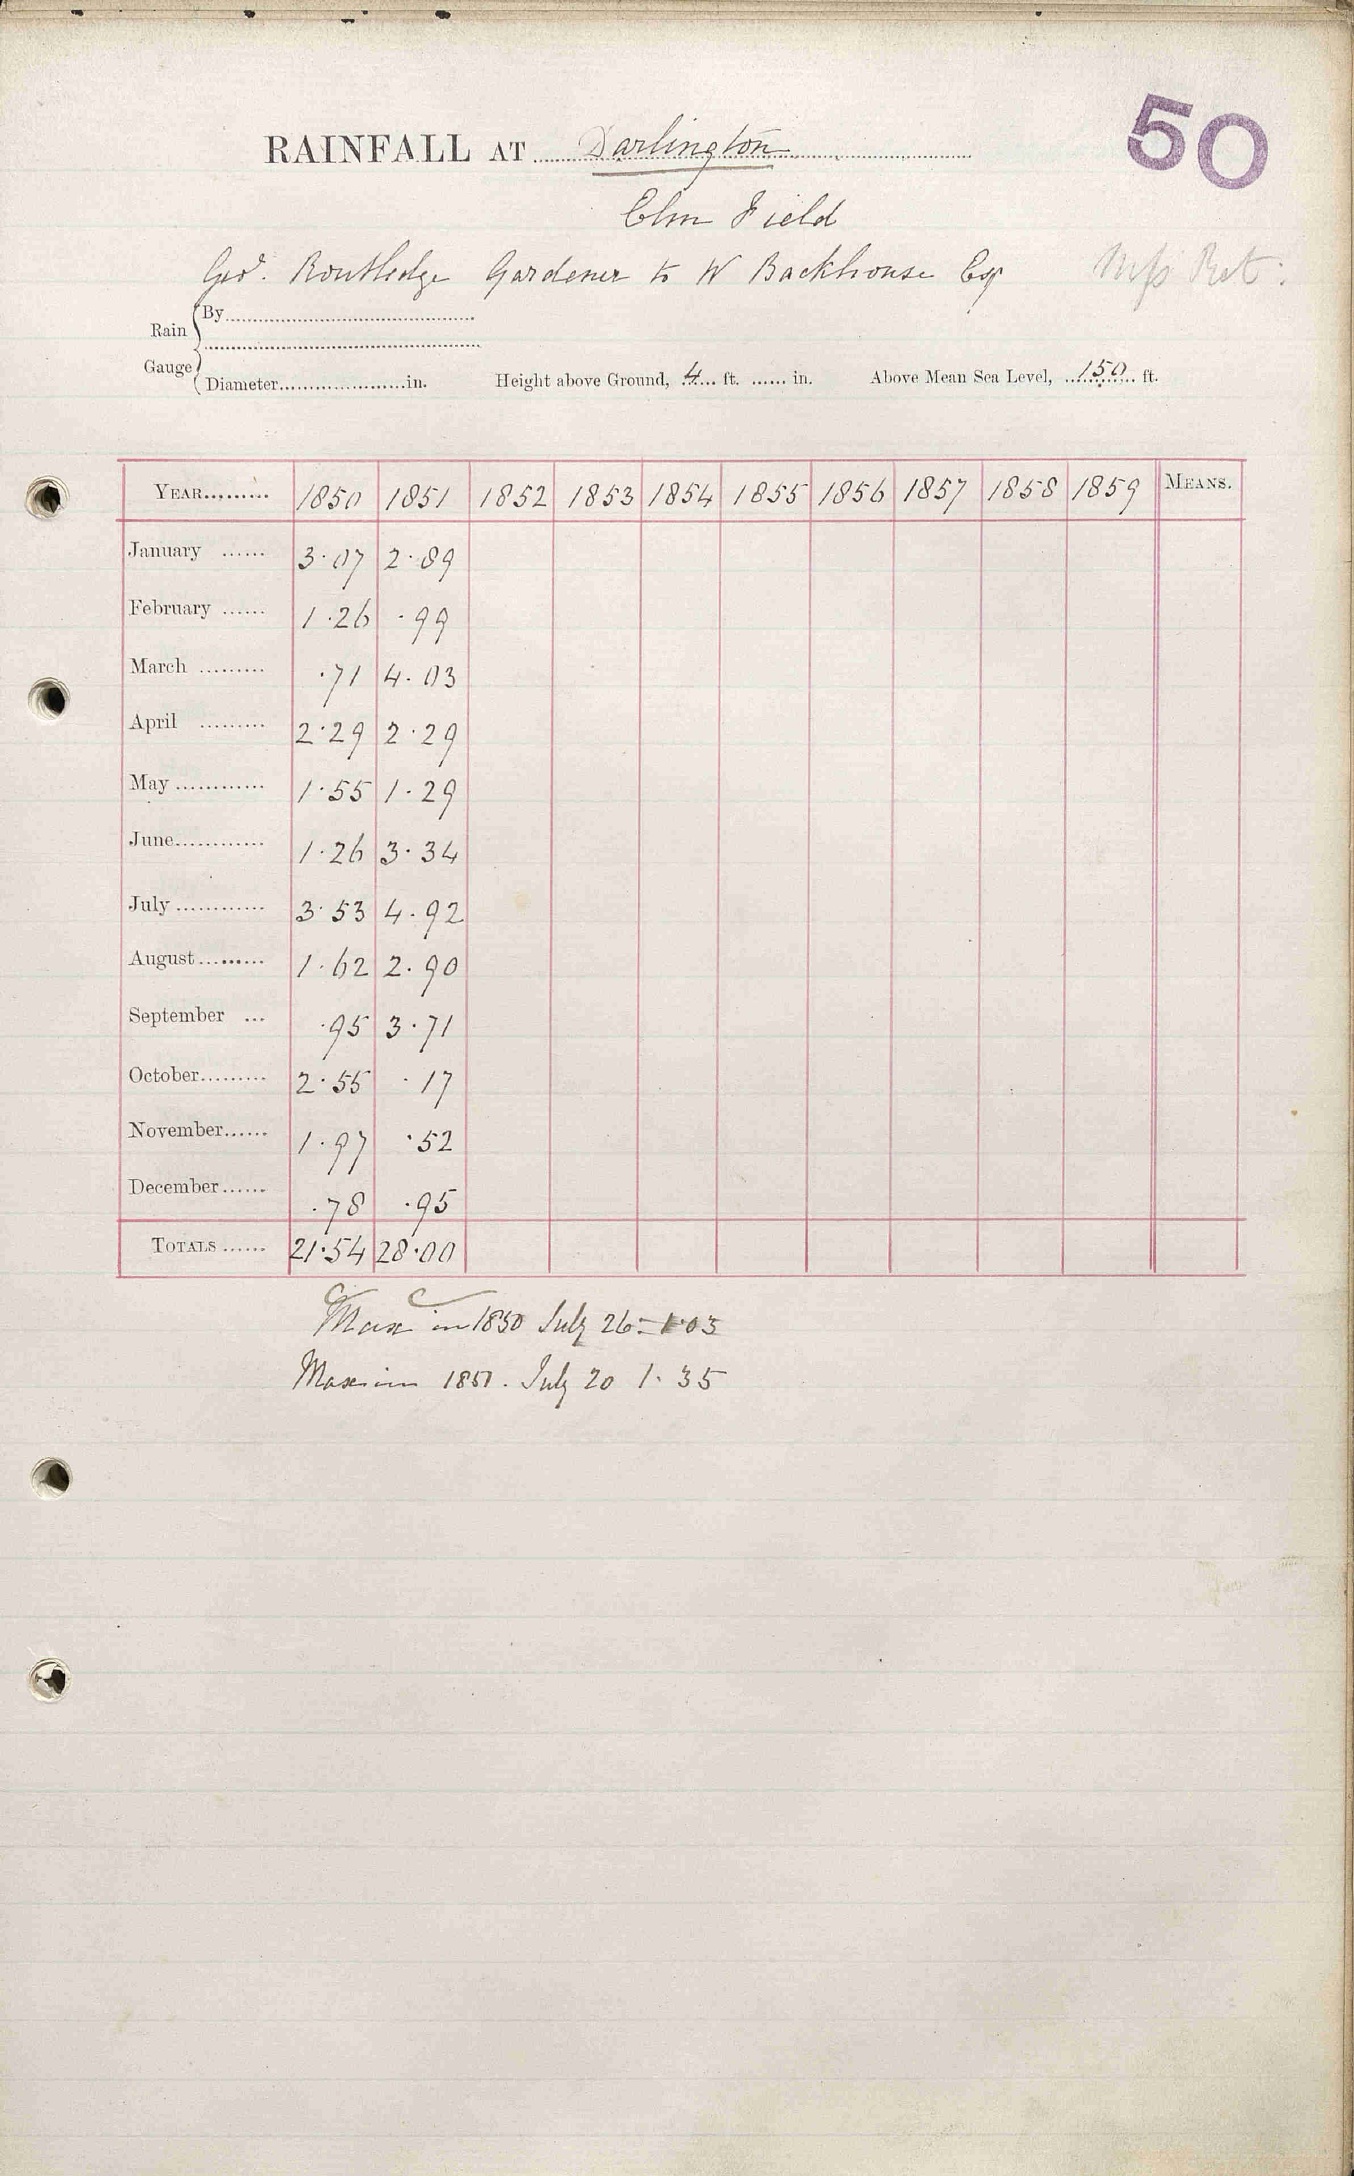 50
RAINFALL AT Darlington
Elm Field
Geo. Routledge Gardener to W Backhouse Esq
Rain Gauge
By
Diameter in. Height above Ground, 4 ft. in. Above Mean Sea Level, 150 ft.
YEAR 1850 1851 1852 1853 1854 1855 1856 1857 1858 1859 MEANS.
January 3.07 2.89
February 1.26 .99
March .71 4.03
April 2.29 2.29
May 1.55 1.29
June 1.26 3.34
July 3.53 4.92
August 1.62 2.90
September .95 3.71
October 2.55 .17
November 1.97 .52
December .78 .95
TOTALS 21.54 28.00
Max in 1850 July 26 = 1.03
Max in 1851. July 20 1.35